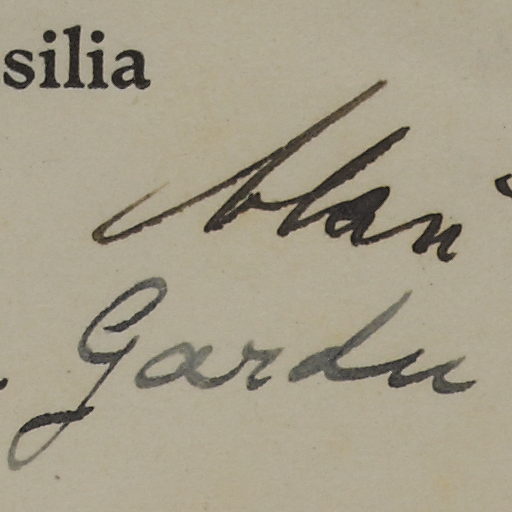 silia
Alan
Gardu